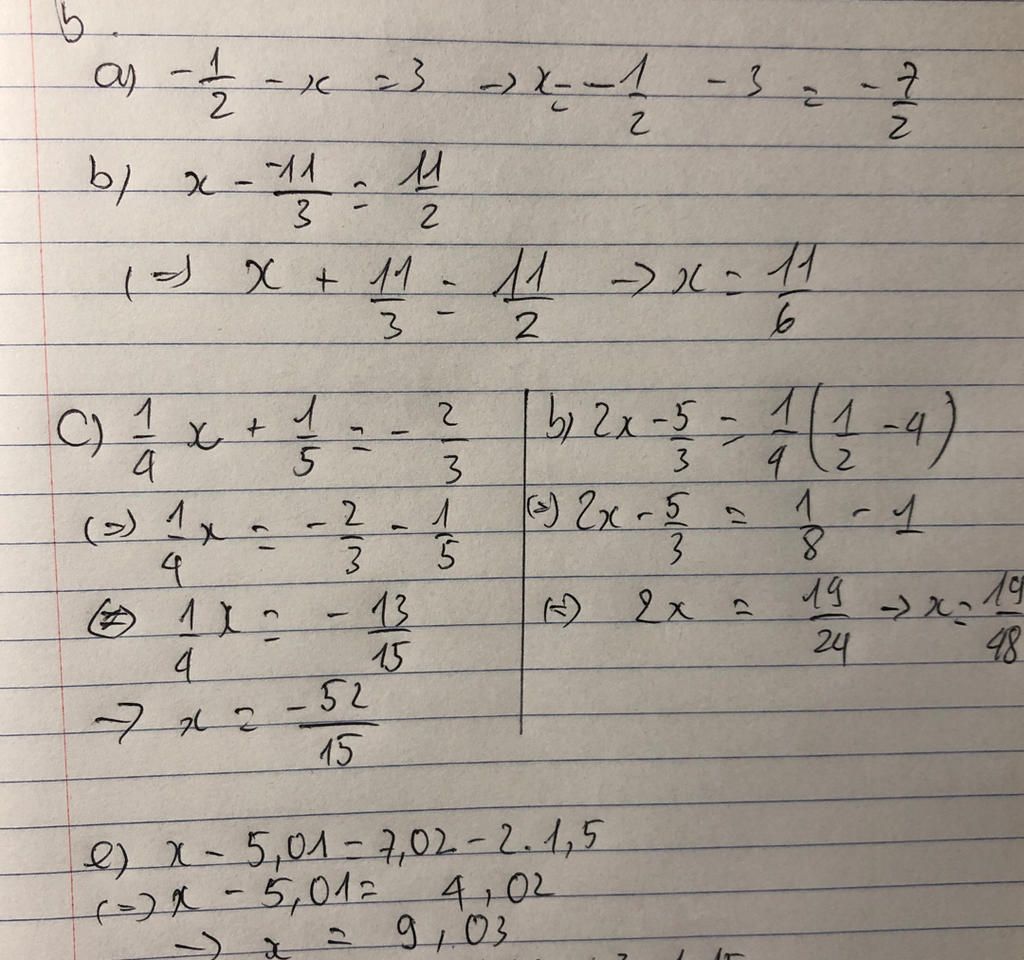 b.
a) -1/2 - x = 3 → x = -1/2 - 3 = -7/2
b) x - -11/3 = 11/2
(=) x + 11/3 = 11/2 → x = 11/6
C) 1/4 x + 1/5 = - 2/3
(=) 1/4 x = - 2/3 - 1/5
(=) 1/4 x = - 13/15
→ x = -52/15
b) 2x - 5/3 = 1/4 (1/2 - 4)
(=) 2x - 5/3 = 1/8 - 1
(=) 2x = 19/24 → x = 19/48
e) x - 5,01 = 7,02 - 2.1,5
(=) x - 5,01 = 4,02
→ x = 9,03